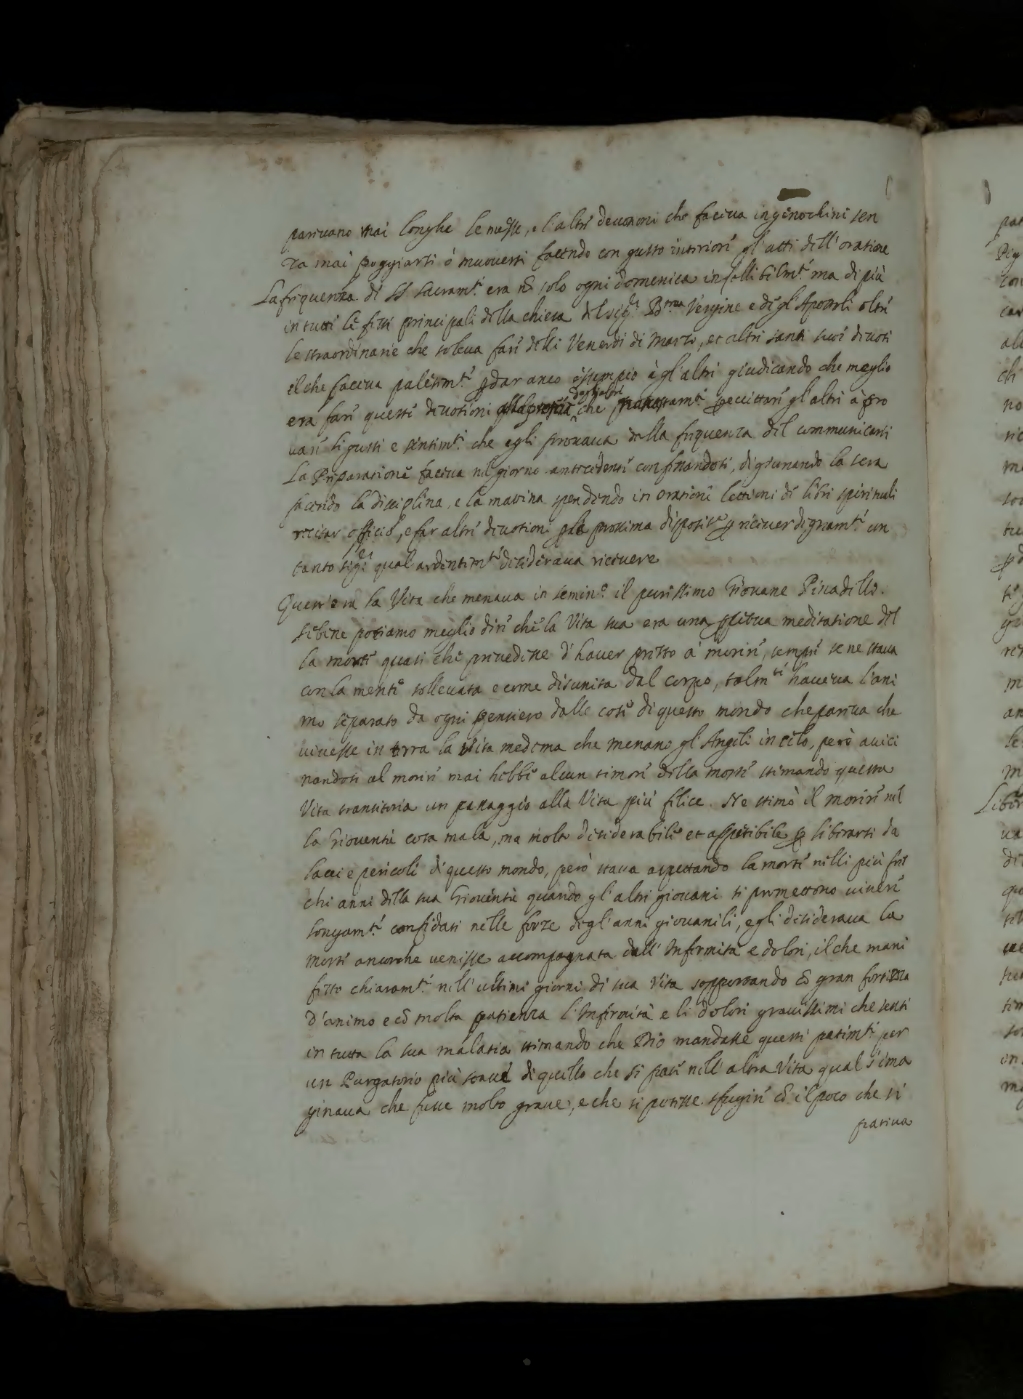 parevano mai longhe le messe, e l'altre devotioni che faceva ingenochini sen
za mai poggiarsi ò muoversi facendo con gusto interiore gl'atti dell'oratione
La frequenza di SS. Sacram.ti era nõ solo ogni domenica infallibilm.te ma di più
in tutte le feste principali della chiesa della Beat.ma Vergine e di gl'Apostoli oltre
le straordinarie che soleva fare delli Venerdi di Marzo, et altri santi suoi divoti
il che faceva palesem.te p dar anco essempio à gl'altri giudicando che meglio
era fare queste divotioni che p eccitare gl'altri à pro
vare li gusti e sentim.ti che egli provava dalla frequenza del communicarsi
La Preparatione faceva nel giorno antecedente confessandosi, digiunando la sera
facendo la disciplina, e la matina spendendo in orationi lettioni di libri spirituali
recitar officio, e far altre divotioni p la prossima dispositione p ricever dignam.te un
tanto Sig.re qual ardentim.te desiderava ricevere
Quest'era la Vita che menava in semin.o il purissimo Giovane Piscadillo.
Se bene potiamo meglio dire che la Vita sua era una ppetua meditatione del
la morte quasi che prevedesse d'haver presto à morire, sempre se ne stava
con la mente sollevata e come disunita dal corpo, talm.te haveva l'ani
mo separato da ogni pensiero dalle cose di questo mondo che pareva che
vivesse in terra la vita medema che menano gl'Angeli in cielo, però avici
nandosi al morire mai hebbe alcun timore della morte stimando questa
Vita transitoria un passaggio alla Vita più felice. Ne stimò il morire nel
la Gioventù cosa mala, ma molto desiderabile et appetibile p liberarsi da
lacci e pericoli di questo mondo, però stava aspettando la morte nelli più fres
chi anni della sua Gioventù quando gl'altri giovani si promettono vivere
longam.te confidati nelle forze degl'anni giovanili, egli desiderava la
morte ancorche venisse accompagnata dall'Infirmità e dolori, il che mani
festo chiaram.te nell'ultimi giorni di sua Vita sopportando cõ gran fortezza
d'animo e cõ molta patienza l'Infirmità e li dolori gravissimi che sentì
in tutta la sua malatia stimando che Dio mandasse questi patim.ti per
un Purgatorio più soave di quello che si pate nell'altra Vita qual s'ima
ginava che fusse molto grave, e che si potesse sfugire cõ il poco che si
pativa